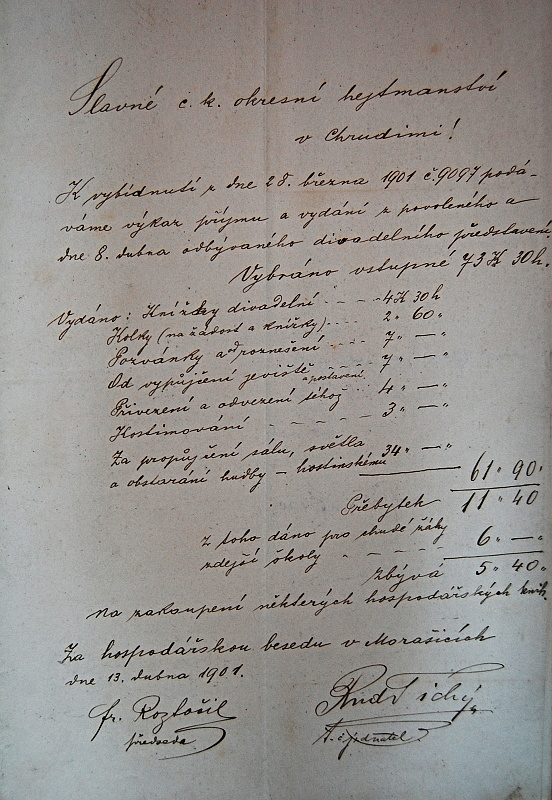 Slavné c. k. okresní hejtmanství
v Chrudimi!
K vybídnutí z dne 28. března 1901 č. 9097 podá-
váme výkaz příjmu a vydání z povoleného a
dne 8. dubna odbývaného divadelního představení.
Vybráno vstupné 73 K 30 h.
Vydáno: Knížky divadelní - - - 4 K 30 h
Kolky (na žádost a knížky) - - - 2 " 60 "
Pozvánky a roznešení - - - 7 " — "
Od vypůjčení jeviště - - - 7 " — "
a postavení
Přivezení a odvezení téhož - 4 " — "
Kostimování - - - - - 3 " — "
Za propůjčení sálu, světla
a obstarání hudby – hostinskému 34 " — "
61 " 90 "
Přebytek 11 " 40
Z toho dáno pro chudé žáky
zdejší školy - - - - 6 " — "
Zbývá 5 " 40 "
na zakoupení některých hospodářských knih.
Za hospodářskou besedu v Morašicích
dne 13. dubna 1901.
fr. Rozlošil Rud Tichý
předseda t. č. jednatel